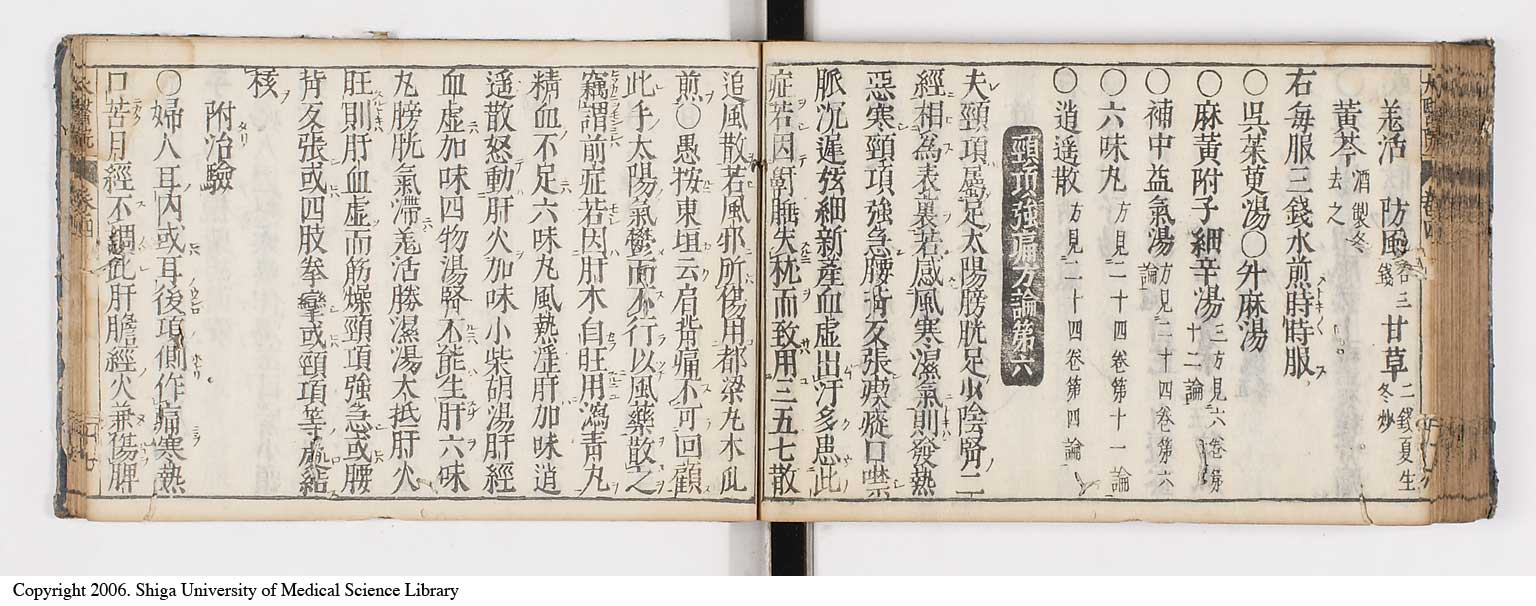 羌活 防風各三錢 甘草二錢夏生冬炒
黃芩酒製冬去之
右每服三錢水煎時時服
〇吳茱萸湯〇升麻湯
〇麻黃附子細辛湯三方見六卷第十二論
〇補中益氣湯方見二十四卷第六論
〇六味丸方見二十四卷第十一論
〇逍遙散方見二十四卷第四論
頸項強痛方論第六
夫頸項屬足太陽膀胱足少陰腎二
經相為表裏若感風寒濕氣則發熱
惡寒頸項強急腰背反張瘈瘲口噤
脈沉遲弦細新產血虛出汗多患此
症若因睡失枕而致用三五七散
追風散若風邪所傷用都梁丸木瓜
煎〇愚按東垣云肩背痛不可回顧
此手太陽氣鬱而不行以風藥散之
竊謂前症若因肝木自旺用瀉青丸
精血不足六味丸風熱淫肝加味逍
遙散怒動肝火加味小柴胡湯肝經
血虛加味四物湯腎不能生肝六味
丸膀胱氣滯羌活勝濕湯大抵肝火
旺則肝血虛而筋燥頸項強急或腰
背反張或四肢拳攣或頸項等處結
核
附治驗
〇婦人耳內或耳後項側作痛寒熱
口苦月經不調此肝膽經火兼傷脾
Copyright 2006. Shiga University of Medical Science Library